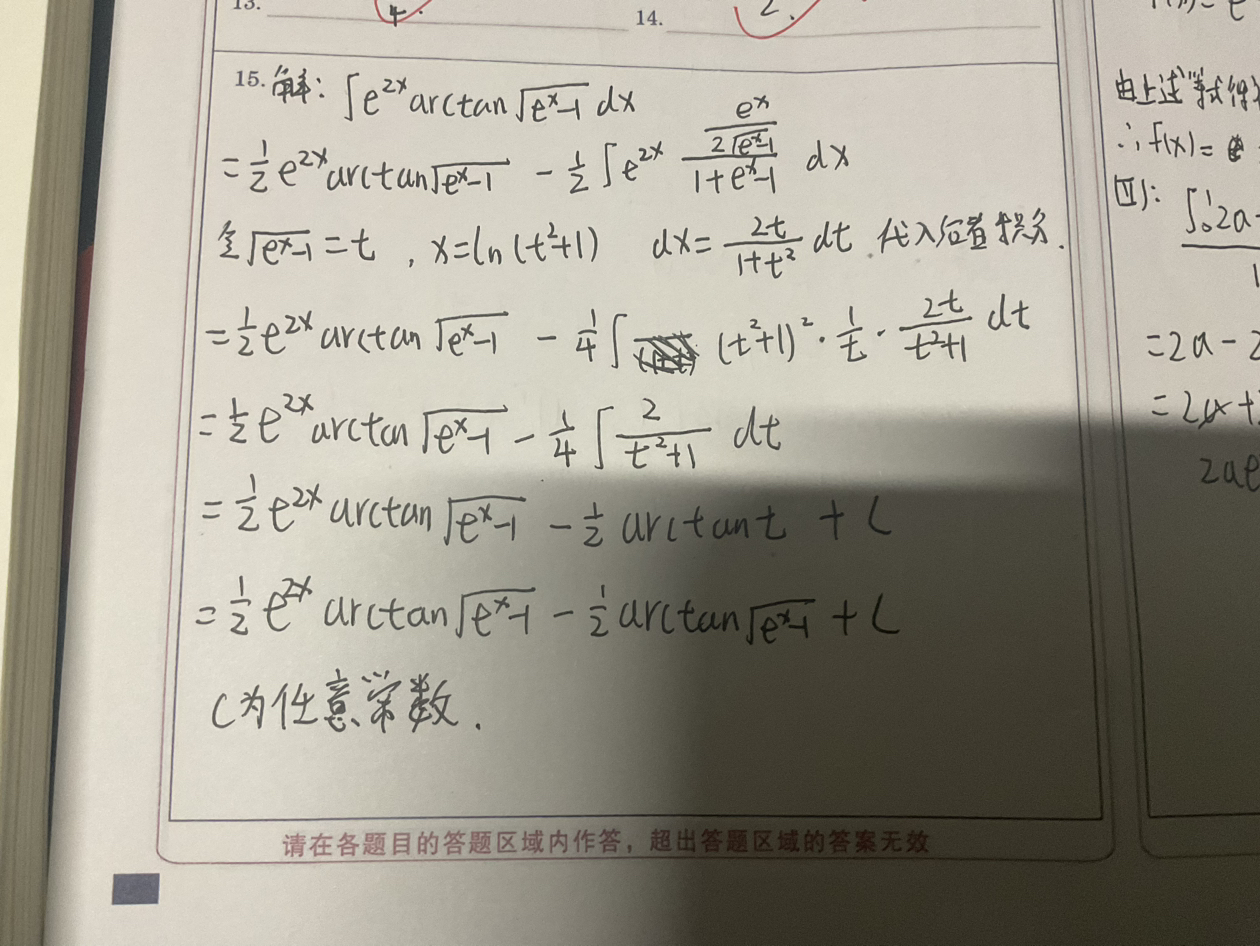 13. 4. 14. 2.
15. 解: ∫e^{2x} arctan√(e^x-1) dx
= 1/2 e^{2x} arctan√(e^x-1) - 1/2 ∫e^{2x} (e^x/(2√(e^x-1)))/(1+e^x-1) dx
令√(e^x-1) = t , x=ln(t²+1) dx= 2t/(1+t²) dt 代入后着
= 1/2 e^{2x} arctan√(e^x-1) - 1/4 ∫ (t²+1)² · 1/t · 2t/(t²+1) dt
= 1/2 e^{2x} arctan√(e^x-1) - 1/4 ∫ 2/(t²+1) dt
= 1/2 e^{2x} arctan√(e^x-1) - 1/2 arctan t + C
= 1/2 e^{2x} arctan√(e^x-1) - 1/2 arctan√(e^x-1) + C
C为任意常数.
请在各题目的答题区域内作答，超出答题区域的答案无效
由上述等式得
∴ f(x)=
(II): ∫₀¹ 2a
1
=2a-2
=2a+
2ae